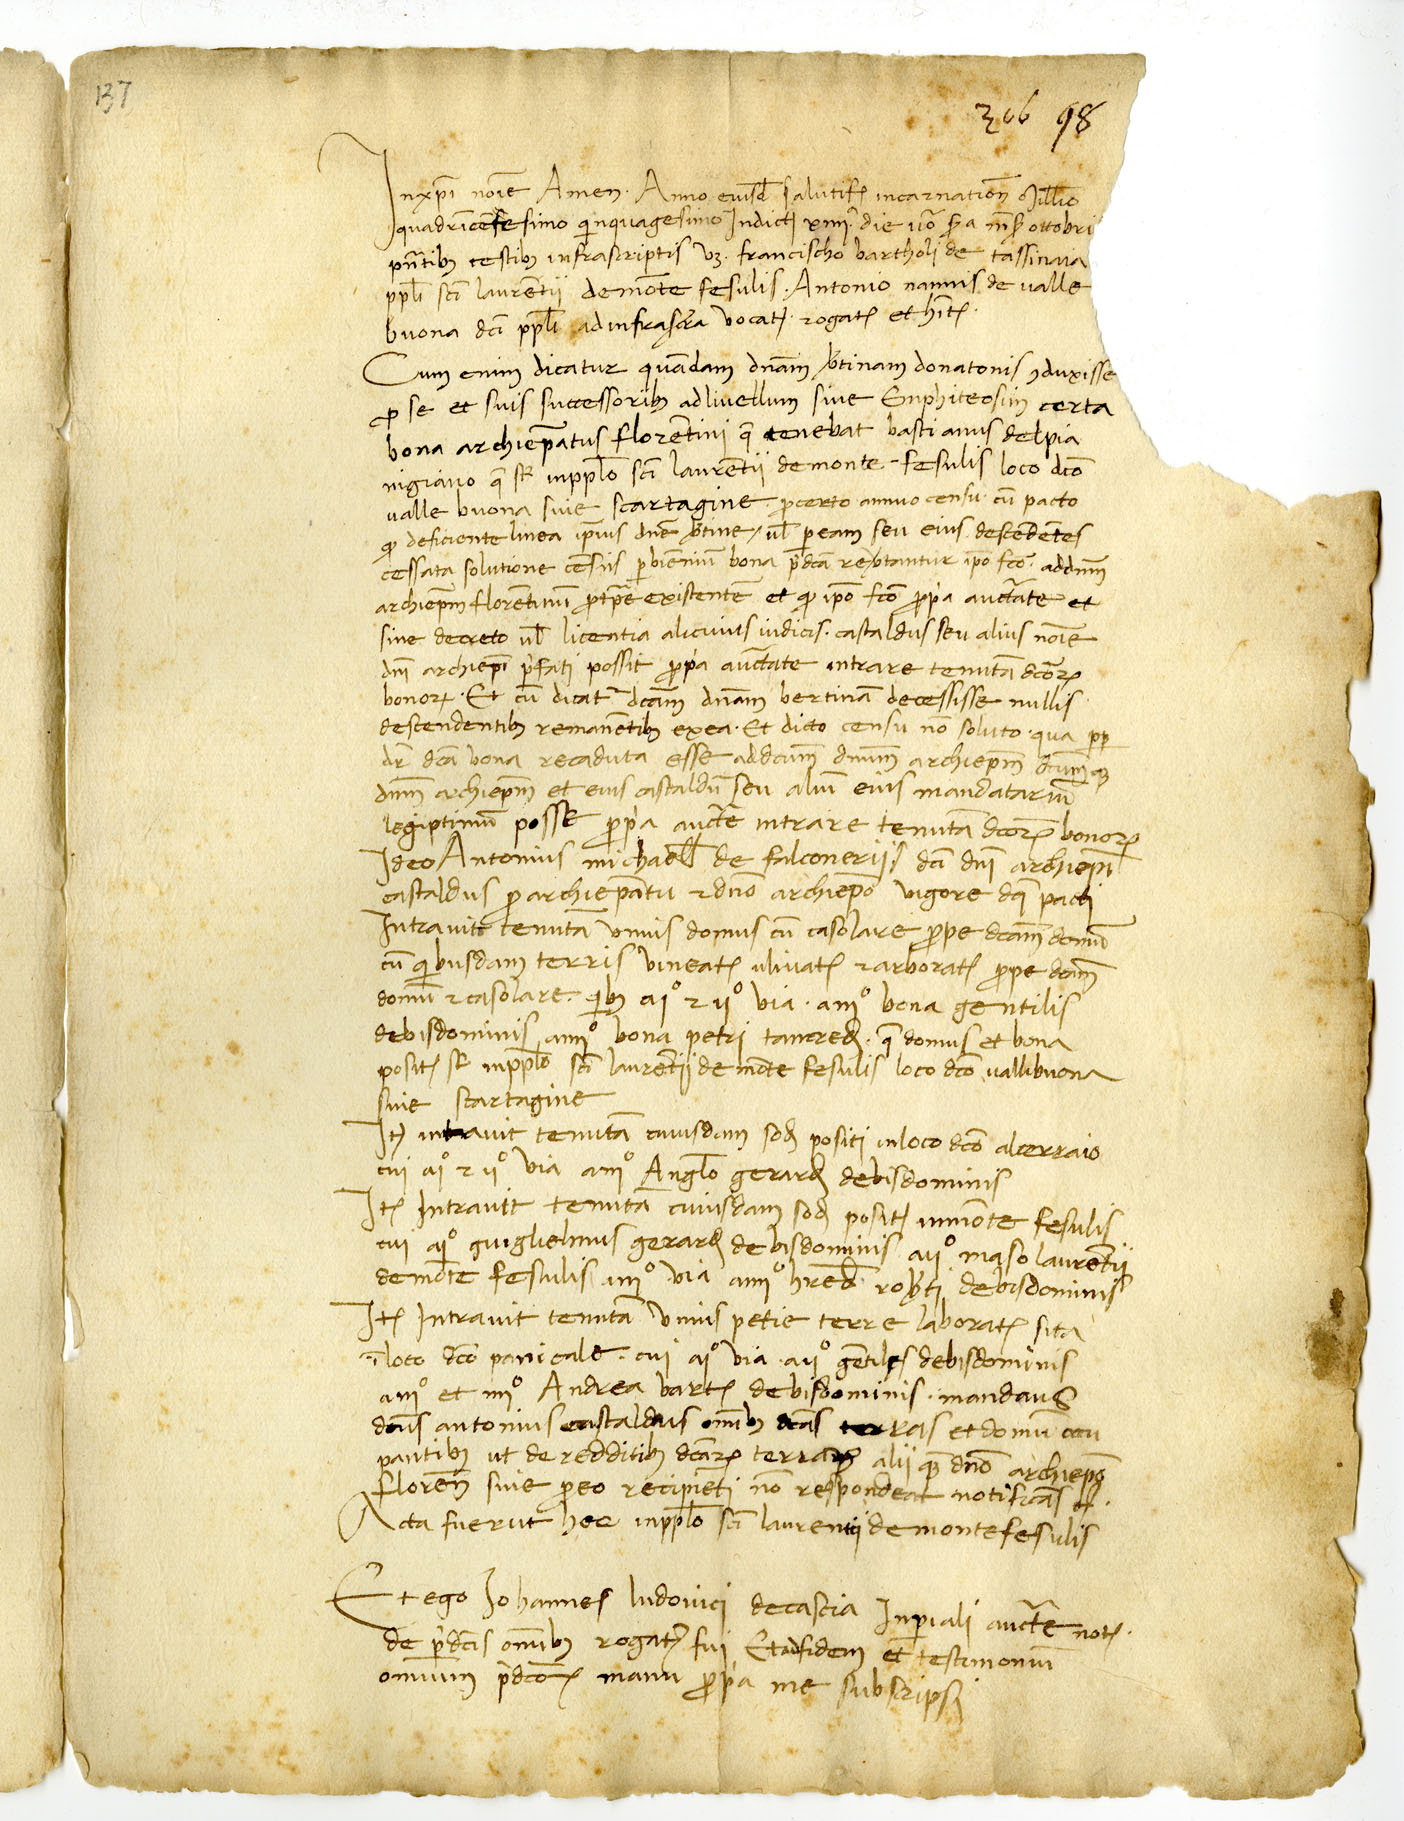 137
306 98
Inxpi noie Amen. Anno eiusd salutif incarnation Millio
quadricentesimo quinquagesimo Indict xiiii die vo sa ms ottobri
pntib testib infrascriptis vz. francischo bartholi de tassinaia
ppli sci laurentii demote fesulis. Antonio nannis de valle
buona dci ppli adinfrascra vocat. rogat et hit.
Cum enim dicatur quadam dnam btinam donatonis 9duxisse
p se et suis successorib adlivellum sive Emphiteosim certa
bona archiepatus florentini q tenebat bastianus delpia
nigiano q st inpplo sci laurentii demonte fesulis loco dco
valle buona sive scartagine. pcerto annuo censu. cu pacto
q deficiente linea ipius dne btine, ul peam seu eius descendetes
cessata solutione cesus pbienniu bona pdca revtantur ipo fco. addnm
archiepm florentinu ptpe existente et q ipo fco ppa auctate et
sine decreto ul licentia alicuius iudicis. castaldus seu alius noie
dni archiepi pfati possit ppa auctate intrare tenuta dcor
bonor. Et cu dicat dcam dnam bertina decessisse nullis
descendentib remanetib exea. Et dicto censu no soluto. qua pp
dr dca bona recaduta esse addcum dnum archiepm dcumq
dnm archiepm et eius castaldu seu aliu eius mandatariu
legiptimu posse ppa aucte intrare tenuta dcor bonor
Ideo Antonius michaell de falconeriis dci dni archiepi
castaldus p archiepatu 2 dno archiepo vigore dci pacti
Intravit tenuta unius domus cu casolare ppe dcam domu
cu quibusdam terris vineat ulivat 2 arborat ppe dcam
domu 2 casolare. quib ai° 2 ii° via. aiii° bona gentilis
debisdominis, aiiii° bona petri tancred. q domus et bona
posit st inpplo sci laurentii demote fesulis loco dco vallibuona
sive scartagine
It intravit tenuta cuiusdam sod positi inloco dco alterraio
cui ai° 2 ii° via aiii° Anglo gerard debisdominis
It Intravit tenuta cuiusdam sod posit inmote fesulis
cui ai° guiglielmus gerard debisdominis aii° maso laurentii
demote fesulis aiii° via aiiii° hred robti debisdominis
It Intravit tenuta unius petie terre laborat sita
i loco dco panicale. cui ai° via. aii° gentiles debisdominis
aiii° et iiii° Andrea bart debisdominis. mandans
dcus antonius castaldus omib dcas terras et domu occu
pantib ut de redditib dcar terrar alii q dno archiepo
floren sive peo recipieti no respondeat notificas
Acta fuerut hec inpplo sci laurentii demonte fesulis
Et ego Iohannes ludovici decascia Inpiali aucte not.
de pdcis omib rogat fui Et adfidem et testimoniu
omnium pdcor manu ppa me subscripsi